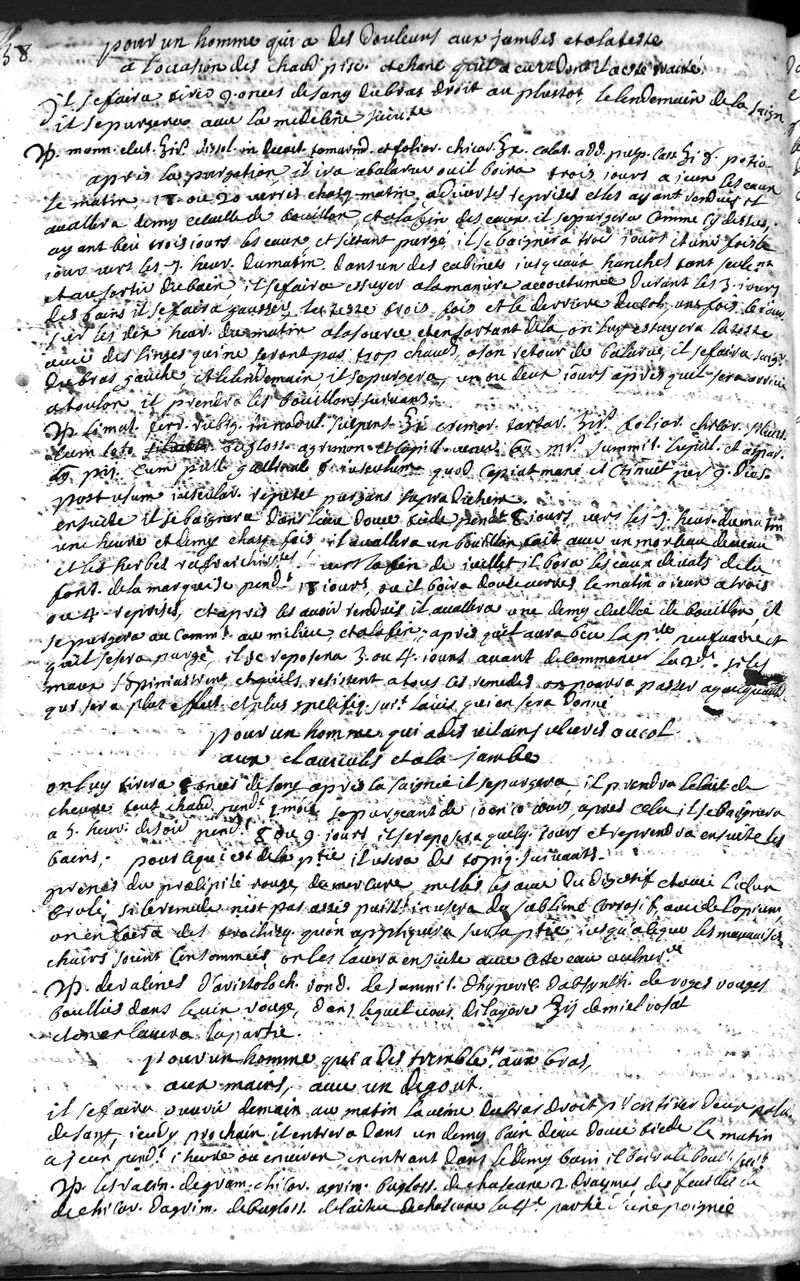 38
pour un homme qui a des douleurs aux jambes et a la teste
a l'occasion des chaud pisc. et chanc qu'il a eu et dont il a esté traité
il se faira tirer 9 onces de sang du bras droit au plustot, le lendemain de la saign
il se purgera avec la medecine suivte
♃. mann. elect. ʒij. dissol. in decoct. tamarind. et folior. chicor. ʒx. colat. add. pulp. cass. ʒi & potio
apres la purgation il ira a balaruc ou il boira trois jours a jeun les eaux
le matin 18 ou 20 verres chaq. matin, a diverses reprises et les ayant rendues et
avallera demy ecuelle de bouillon, et a la fin des eaux il se purgera comme cy dessus.
ayant beu trois jours les eaux et s'estant purgé, il se baignera trois jours et une fois le
jour vers les 7 heur. du matin dans un des cabinets jusqu'aux hanches tant seulemt
et au sortir du bain, il se faira essuyer a la maniere accoutumée durant les 3 jours
des bains il se faira la teste trois fois et le derriere du col une fois le jour
sur les dix heur. du matin a la source et en sortant de la on luy essuyera la teste
avec des linges qui ne seront pas trop chauds, a son retour de balaruc, il se faira saign.
du bras gauche, et le lendemain il se purgera, un ou deux jours apres qu'il sera arrivé
a toulon il prendra les bouillons suivans.
♃ limat. ferr. rubig. in nodul. suspens. ʒi cremor. tartar. ʒij. folior. chicor.
cum toto bugloss. agrimon. et capill. vener. mj. summit. lupul. et
pij. cum pull. gallinac. f. jusculum quod capiat mane et continuet per 9 dies.
post usum juscular. repetet purgans supra dictum.
ensuite il se baignera dans l'eau douce tiede pendt 8 jours, vers les 7 heur. du matin
une heure et demy chaq. fois il avallera un bouillon fait avec un morceau de veau
et les herbes raffraichisstes. vers la fin de juillet il bora les eaux de vals de la
font. de la marquise pendt 18 jours, ou il boira douze verres le matin a jeun a trois
ou 4 reprises, et apres les avoir rendues il avallera une demy ecuellée de bouillon, il
se purgera au commt au milieu et a la fin, apres qu'il aura beu la pnte neufvaine et
qu'il se sera purgé, il se reposera 3 ou 4 jours avant de commencer la 2de. si les
maux s'opiniastrent, et qu'ils resistent a tous ces remedes on pourra passer a quelqu'autre
qui sera plus effect. et plus specifiq. suivt l'avis qui en sera donné
pour un homme qui a des vilains ulceres au col
aux clavicules et a la jambe
on luy tirera 8 onces de sang apres la saignée il se purgera, il prendra le lait de
chevre tout chaud pendt 1 mois se purgeant de 10 en 10 jours, apres cela il se baignera
a 5 heur. de soir pendt 8 ou 9 jours il se reposera quelq. jours et reprendra ensuite les
bains. pour ce qui est de la ptie il usera des topiq. suivants.
prenes du præcipité rouge de mercure meslés les avec du digestif et avec l'alun
brulé, si le remede n'est pas assés puisst on usera du sublimé corrosif, avec de l'opium
on en faira des trochisq. qu'on appliquera sur la ptie, jusqu'a ce que les mauvaises
chairs soint consommées on les lavera ensuite avec cete eau vulner.re
♃. de racines d'aristoloch. rond. le summit. d'hyperic. d'absynth. de roses rouges
bouillies dans le vin rouge, dans lequel vous dilayeres ʒij de miel rosat
et on en lavera la partie.
pour un homme qui a des tremblets aux bras,
aux mains, avec un degout.
il se faira ouvrir demain au matin la veine du bras droit pr en tirer deux palet.
de sang, jeudy prochain il entrera dans un demy bain d'eau douce tiede le matin
a jeun pendt 1 heure ou environ en entrant dans le demy bain il boira le bouill. suivt
♃ les racin. de gram. chicor. agrim. bugloss. de chacune 2 dragmes des feuilles de
de chicor. d'agrim. de bugloss. de laitue de chacune la 4e partie d'une poignée